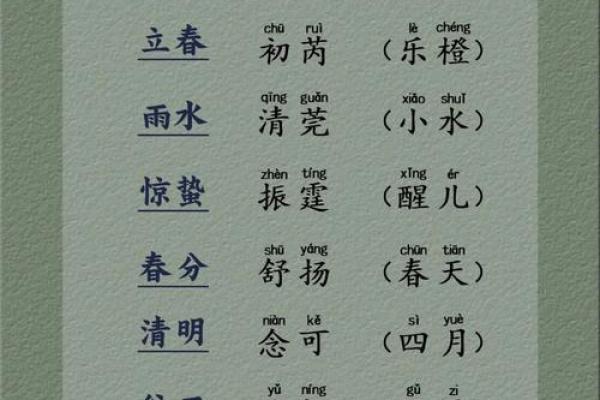 chū ruì lè chéng
立春 初芮 (乐橙)
qīng guǎn xiǎo shuǐ
雨水 清莞 (小水)
zhèn tíng xǐng ér
惊蛰 振霆 (醒儿)
shū yáng chūn tiān
春分 舒扬 (春天)
niàn kě sì yuè
清明 念可 (四月)
yǔ níng gǔ zi